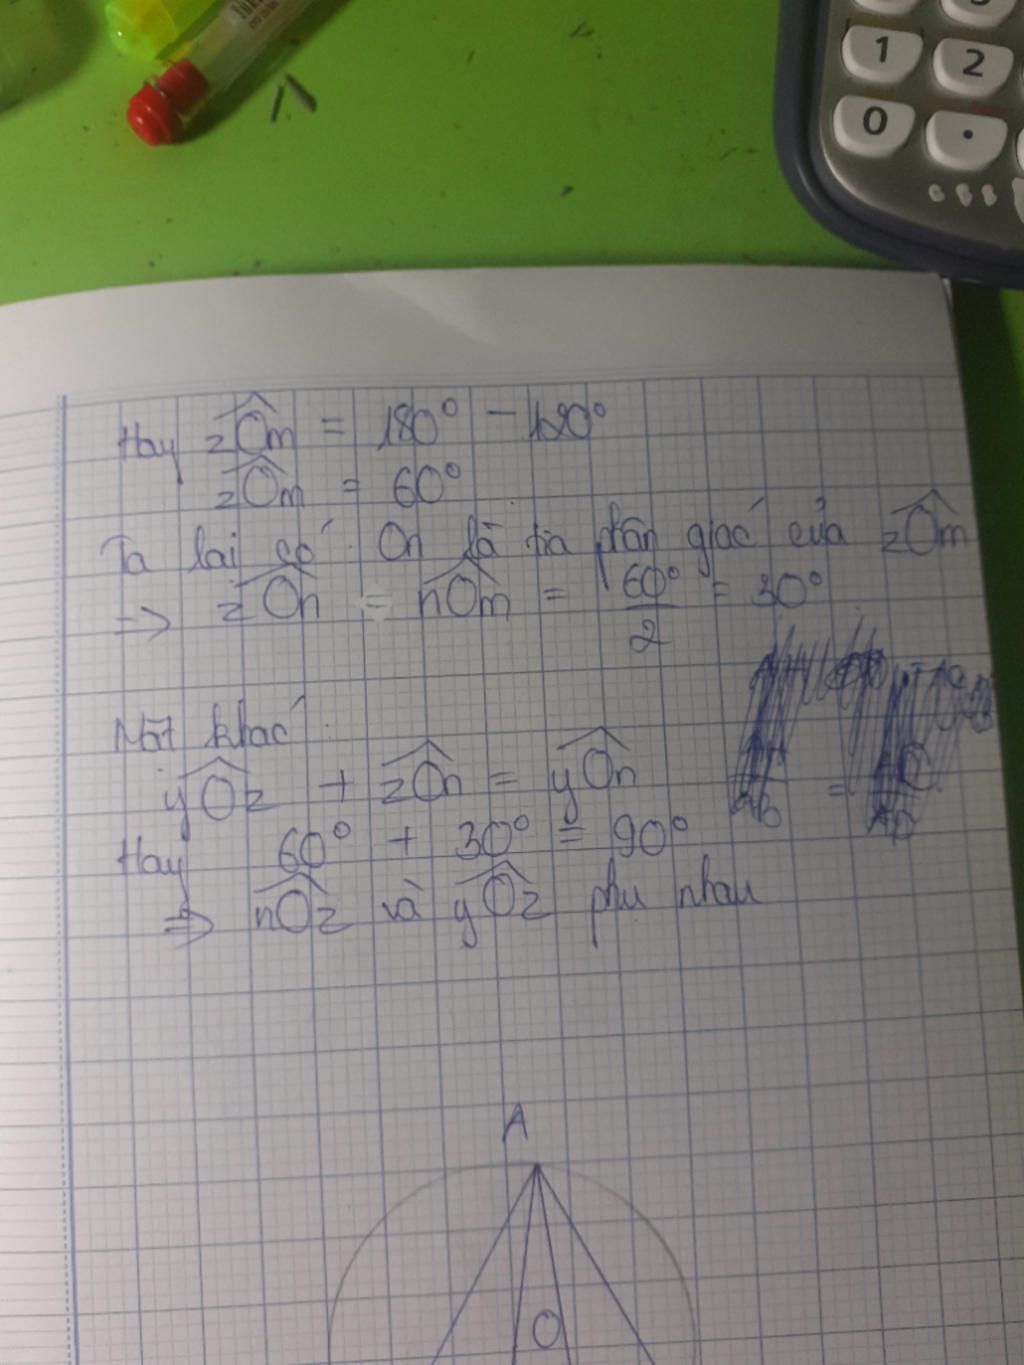 1 2
0 .
Hay zÔm = 180° - 120°
zÔm = 60°
Ta lại có: On là tia phân giác của zÔm
=> zÔn = nÔm = 60°/2 = 30°
Mặt khác:
yÔz + zÔn = yÔn
Hay 60° + 30° = 90°
=> nÔz và yÔz phụ nhau
A
O